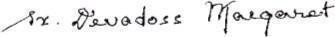 Sr. Devadoss Margaret